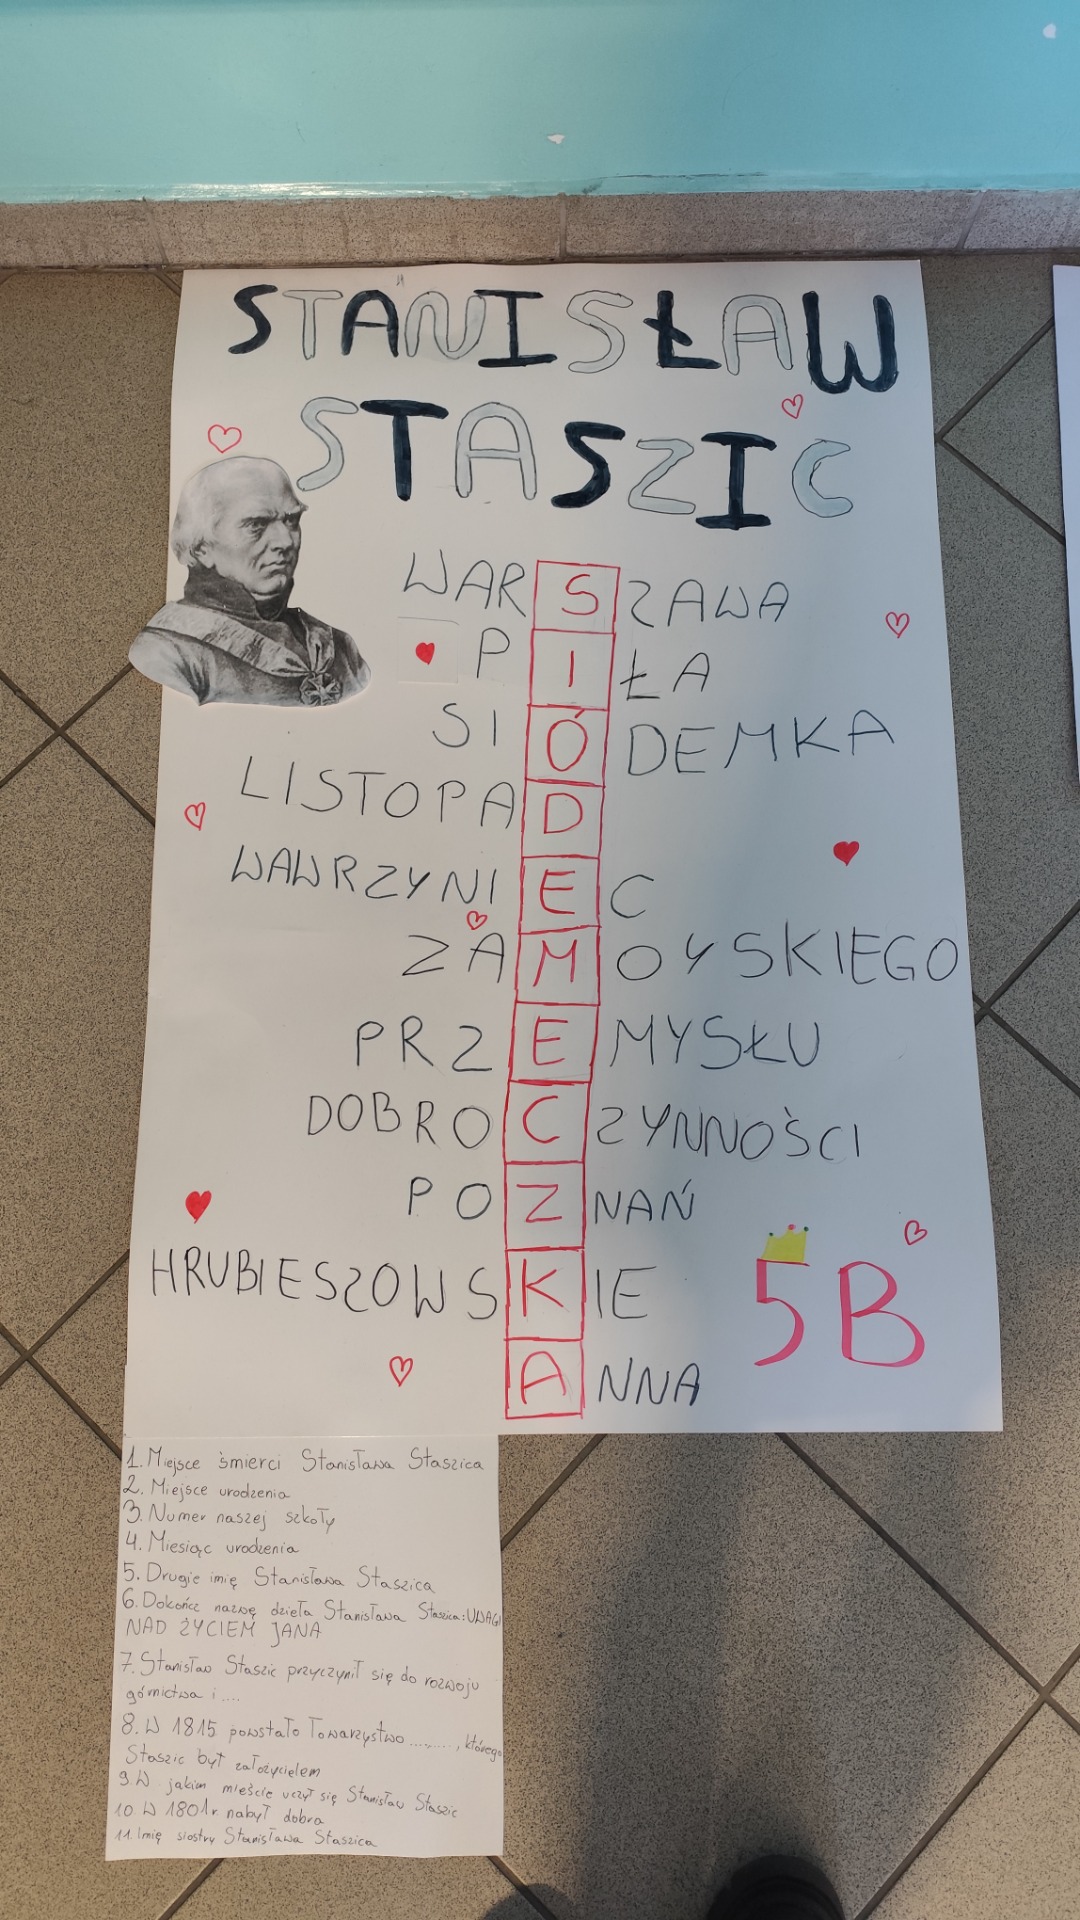 STANISŁAW
STASZIC
WARSZAWA
PIŁA
SIÓDEMKA
LISTOPAD
WAWRZYNIEC
ZAMOYSKIEGO
PRZEMYSŁU
DOBROCZYNNOŚCI
POZNAŃ
HRUBIESZOWSKIE
ANNA
5B
1. Miejsce śmierci Stanisława Staszica
2. Miejsce urodzenia
3. Numer naszej szkoły
4. Miesiąc urodzenia
5. Drugie imię Stanisława Staszica
6. Dokończ nazwę dzieła Stanisława Staszica: UWAGI
NAD ŻYCIEM JANA
7. Stanisław Staszic przyczynił się do rozwoju
górnictwa i ....
8. W 1815 powstało Towarzystwo ........, którego
Staszic był założycielem
9. W jakim mieście uczył się Stanisław Staszic
10. W 1801r nabył dobra
11. Imię siostry Stanisława Staszica